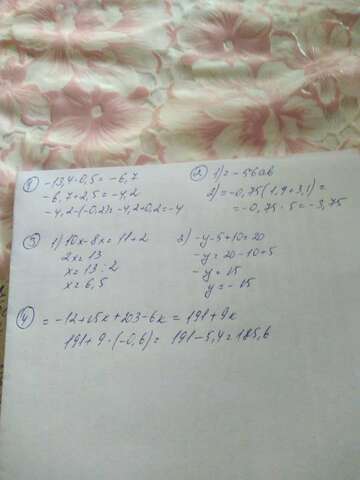 ① -13,4·0,5 = -6,7
-6,7+2,5 = -4,2
-4,2-(-0,2) = -4,2+0,2 = -4
② 1) = -56ab
2) = -0,75(1,9+3,1) =
= -0,75·5 = -3,75
③ 1) 10x-8x = 11+2
2x = 13
x = 13:2
x = 6,5
2) -y-5+10 = 20
-y = 20-10+5
-y = 15
y = -15
④ = -12+15k+203-6k = 191+9k
191+9·(-0,6) = 191-5,4 = 185,6